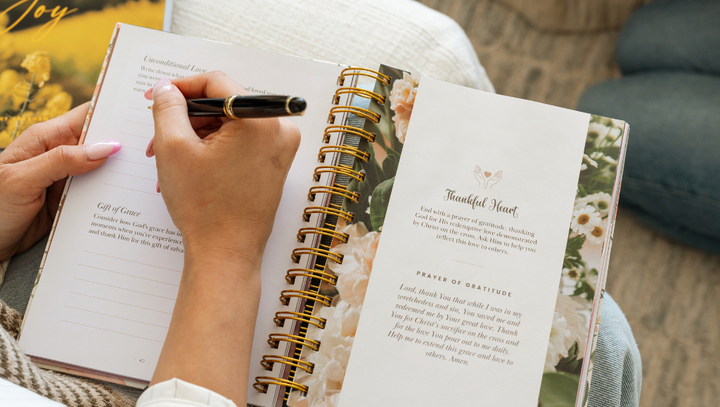 Joy
Unconditional Love
Write down what
you were
Gift of Grace
Consider how God's grace has
moments when you've experienc
and thank Him for this gift of salva
Thankful Heart
End with a prayer of gratitude, thanking
God for His redemptive love demonstrated
by Christ on the cross. Ask Him to help you
reflect this love to others.
PRAYER OF GRATITUDE
Lord, thank You that while I was in my
wretchedness and sin, You saved me and
redeemed me by Your great love. Thank
You for Christ's sacrifice on the cross and
for the love You pour out to me daily.
Help me to extend this grace and love to
others. Amen.